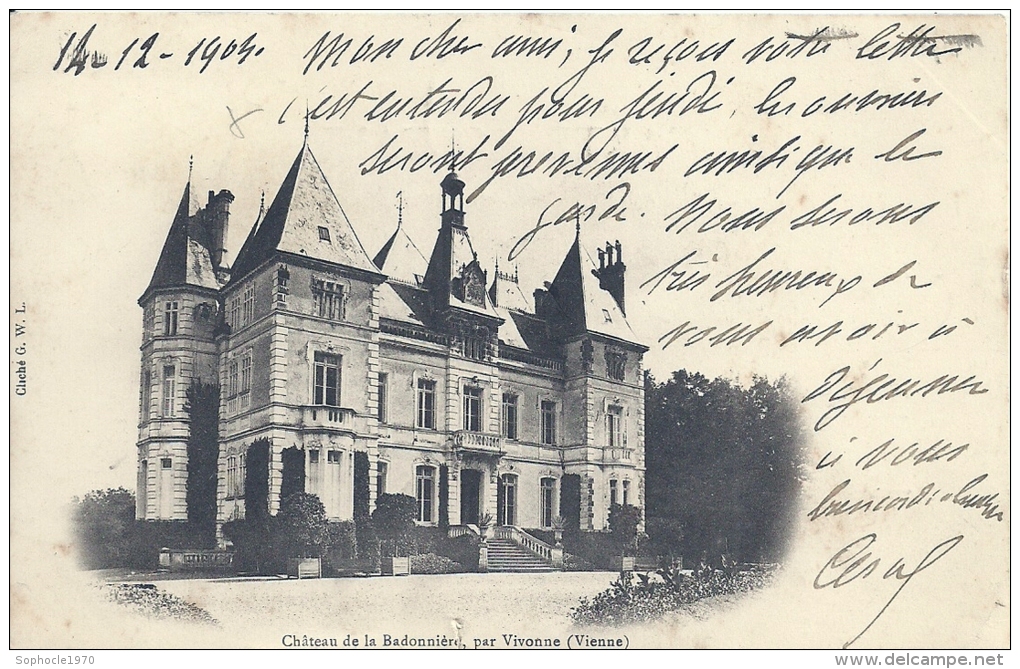 14-12-1904. Mon cher ami, Je reçois votre lettre
c'est entendu pour jeudi, les ouvriers
seront prévenus ainsi que le
garde. Nous serons
très heureux de
vous avoir à
déjeuner
à vous
bien cordialement
Cliché G. W. L.
Château de la Badonnière, par Vivonne (Vienne)
Sophocle1970
www.delcampe.net